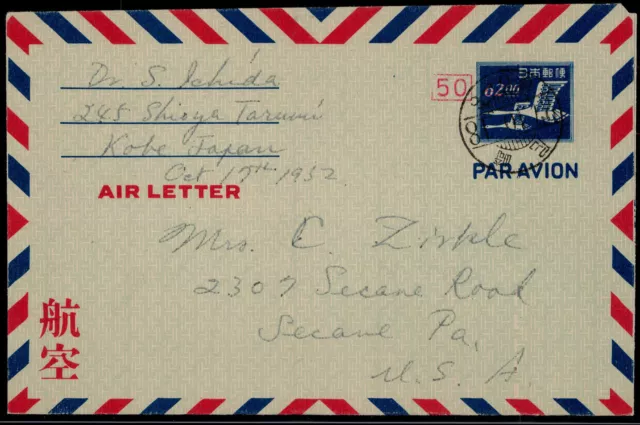 Dr. S. Ichida
245 Shioya Tarumi
Kobe Japan
Oct 17th 1952
AIR LETTER
50
日本郵便
62.00
PAR AVION
Mrs. C. Zirkle
2307 Secane Road
Secane Pa.
U. S. A.
航空